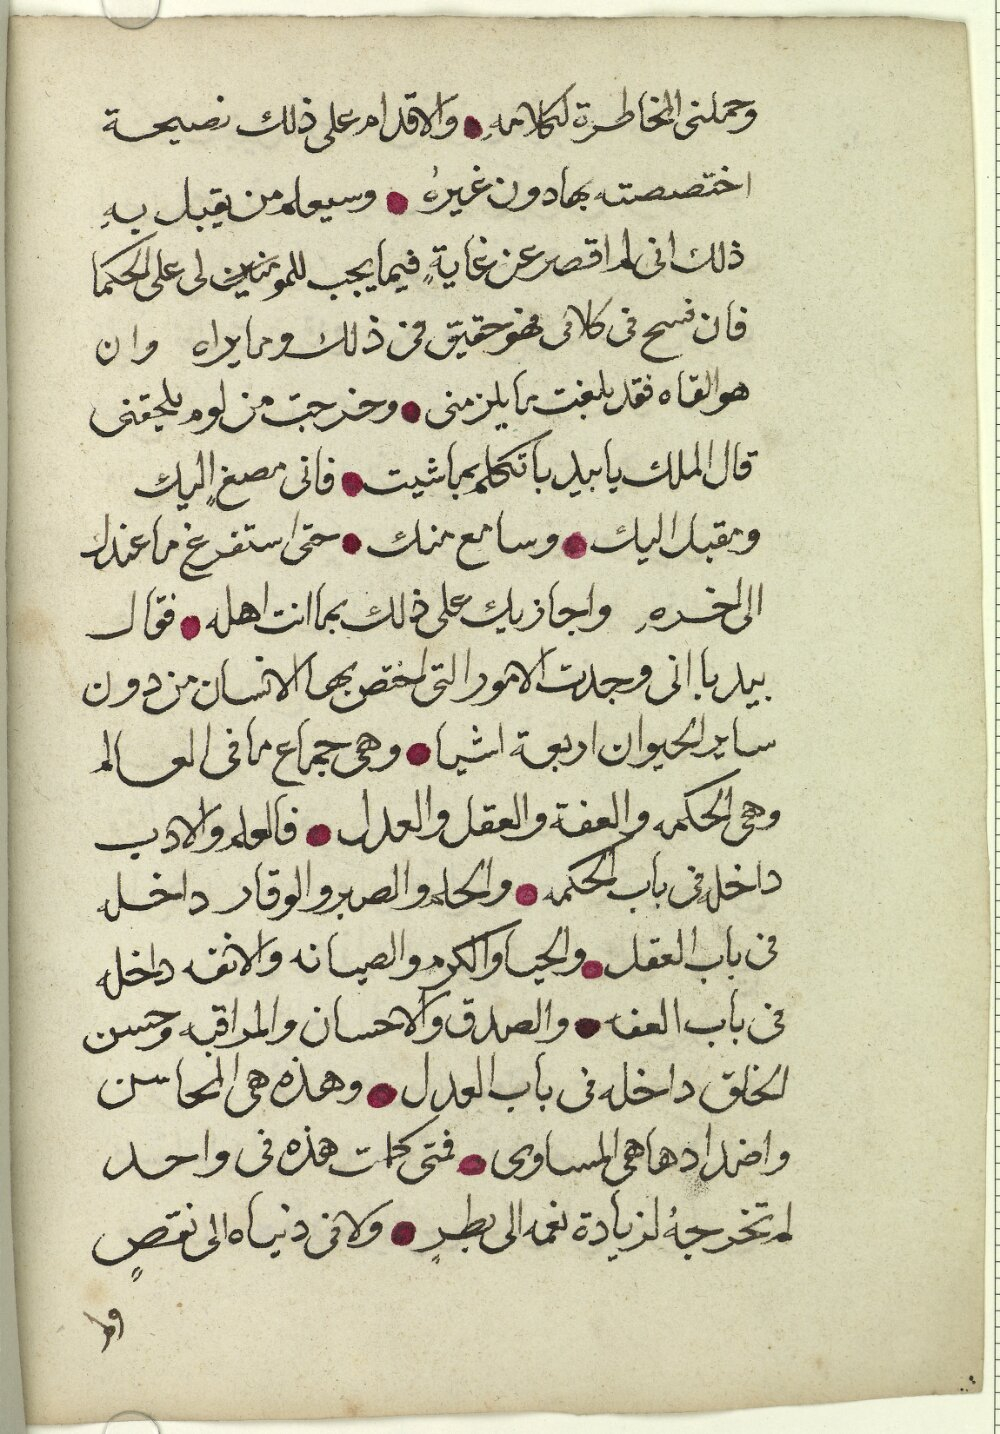 وحملنى المخاطرة لكلامهِ • والاقدام على ذلك نصيحة
اختصصته بها دون غيرهُ • وسيعلم من يقبل بهِ
ذلك انى لم اقصر عن غايةٍ فيما يجب للمومنين لى على الحكما
فان فسح فى كلامى فهو حقيق فى ذلك وما يراه وان
هو القاه فقد بلغت ما يلزمنى • وخرجت من لوم يلحقنى
قال الملك يا بيدبا تكلم بما شيت • فانى مصغٍ اليك
ومقبل اليك • وسامع منك • حتى استفرغ ما عندك
الى اخرهِ واجازيك على ذلك بما انت اهله • فقال
بيدبا انى وجدت الامور التى اختص بها الانسان من دون
ساير الحيوان اربعة اشيا • وهى جماع ما فى العالم
وهى الحكمه والعفة والعقل والعدل • فالعلم والادب
داخلهِ فى باب الحكمه • والحلم والصبر والوقار داخله
فى باب العقل • والحيا والكرم والصيانه والانفه داخله
فى باب العفه • والصدق والاحسان والمراقبه وحسن
الخلق داخله فى باب العدل • وهذه هى المحاسن
واضدادها هى المساوى • فمتى كملت هذه فى واحد
لم تخرجهُ لزيادة نعمه الى بطرٍ • ولا فى دنياه الى نقصٍ